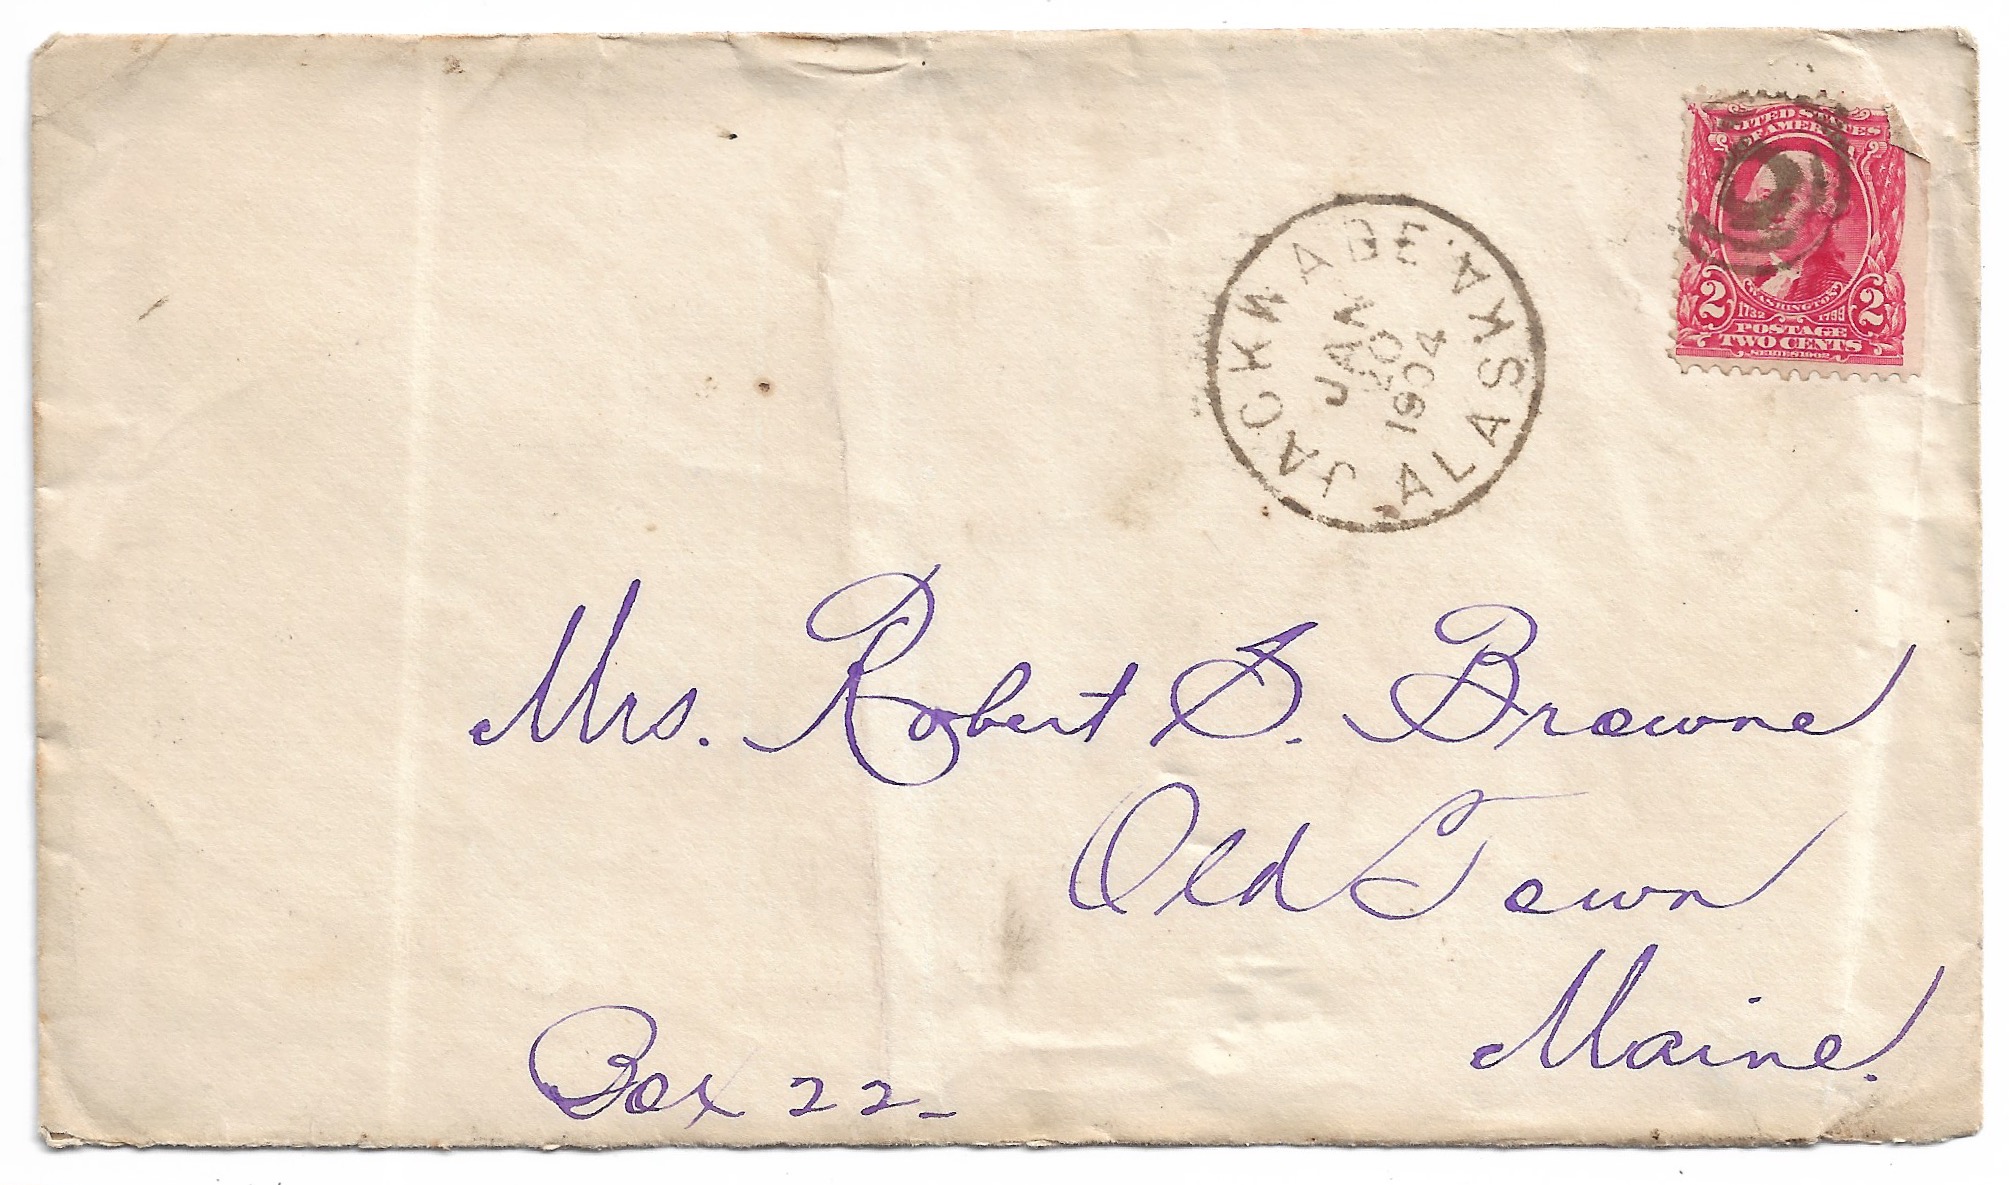 UNITED STATES
OF AMERICA
2 WASHINGTON 2
1732 1799
POSTAGE
TWO CENTS
SERIES 1902
JACKWADE
JAN
20
1904
ALASKA.
Mrs. Robert S. Browne
Old Town
Maine.
Box 22-